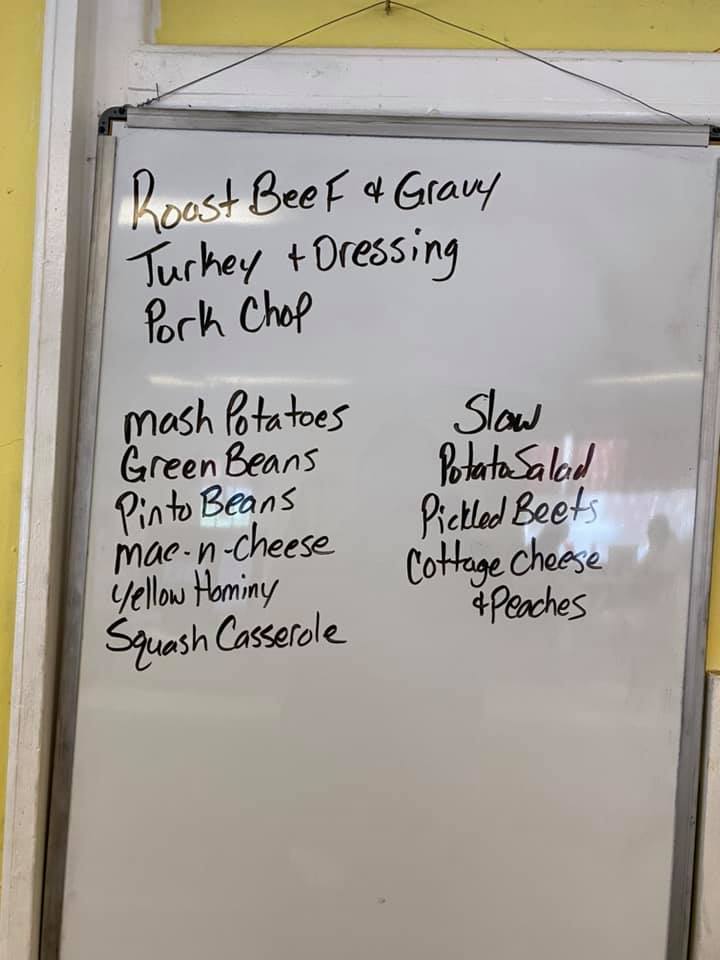 Roast Beef & Gravy
Turkey + Dressing
Pork Chop
mash Potatoes
Green Beans
Pinto Beans
mac-n-cheese
Yellow Hominy
Squash Casserole
Slaw
Potato Salad
Pickled Beets
Cottage cheese
& Peaches